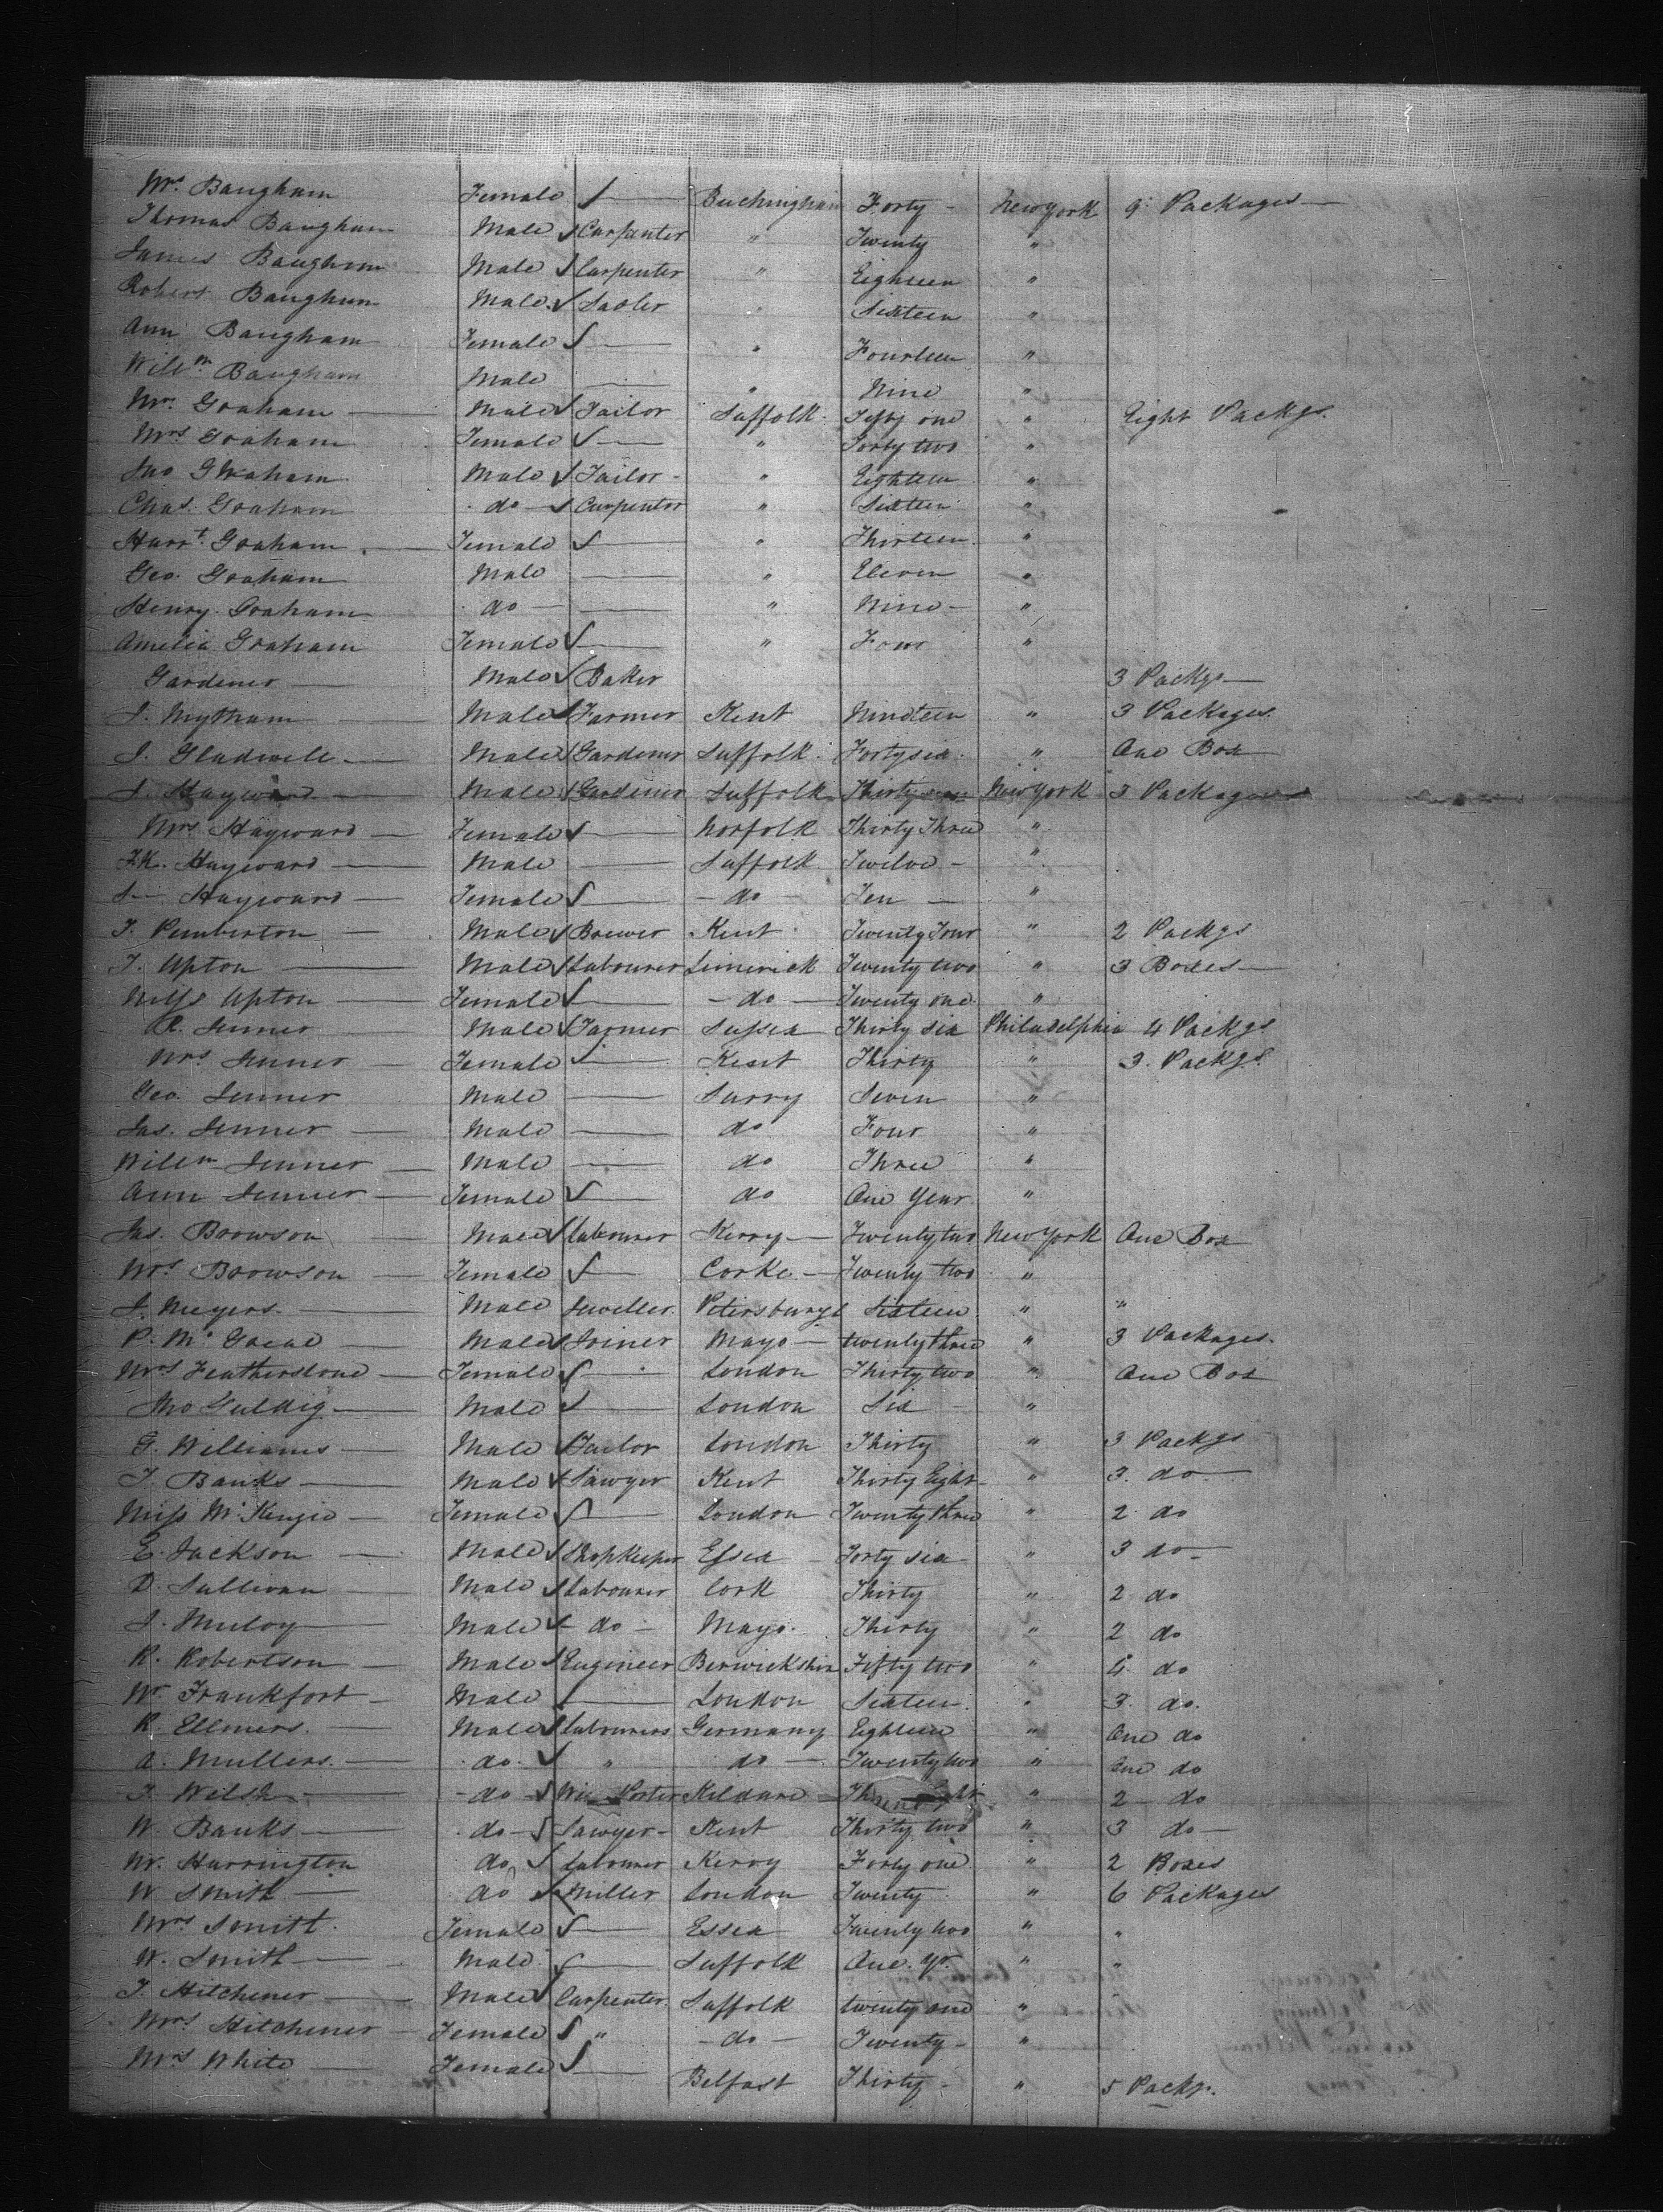 Mrs Baugham Female — Buckingham Forty - New York 9 Packages —
Thomas Baugham Male Carpenter " Twenty "
James Baugham Male Carpenter " Eighteen "
Robert Baugham Male Sadler " Sixteen "
Ann Baugham Female — " Fourteen "
Willm Baugham Male — " Nine "
Mr. Graham — Male Tailor Suffolk Fifty one " Eight Packgs
Mrs Graham Female — " Forty two "
Jno Graham Male Tailor - " Eighteen "
Chas. Graham do — Carpenter " Sixteen "
Harrt. Graham — Female — " Thirteen "
Geo. Graham Male — " Eleven "
Henry Graham do — — " Nine - "
Amelia Graham Female — " Four "
Gardener — Male Baker 3 Packgs —
J. Mytham Male Farmer Kent Nineteen " 3 Packages
J. Gladwell — Male Gardener Suffolk Forty six " One Box
J. Hayward — Male Gardener Suffolk Thirty New York 3 Packages
Mrs Hayward — Female — Norfolk Thirty Three "
Hayward — Male — Suffolk Twelve - "
Hayward — Female — - do - Ten — "
T. Pemberton — Male Brewer Kent Twenty Four " 2 Packgs
T. Upton — Male Labourer Limerick Twenty two " 3 Boxes —
Miss Upton — Female — - do - Twenty one "
R. Jenner — Male Farmer Sussex Thirty six Philadelphia 4 Packgs
Mrs Jenner — Female — Kent Thirty " 3 Packgs
Geo. Jenner Male — Surry Seven "
Jas. Jenner — Male — do Four "
Willm Jenner — Male — do Three "
Ann Jenner — Female — do One Year "
Jas. Browson Male Labourer Kerry — Twenty two New York One Box
Mrs Browson — Female — Corke — Twenty two "
J. Meyers — Male Jeweller Petersburgh Sixteen " "
P. Mc Male Joiner Mayo — twenty three " 3 Packages
Mrs Featherstone — Female — London Thirty two " One Box
Jno Guldig — Male — London Six - "
G. Williams — Male Tailor London Thirty " 3 Packgs
T. Banks — Male Sawyer Kent Thirty Eight " 3 do —
Miss McKenzie — Female — London Twenty three " 2 do
E. Jackson — Male Shopkeeper Essex Forty six " 3 do -
D. Sullivan — Male Labourer Cork Thirty " 2 do
J. Muloy — Male - do - Mayo Thirty " 2 do
R. Robertson — Male Engineer Berwickshire Fifty two " 4 do
W. Frankfort — Male — London Sixteen " 3 do
R. Ellmers — Male Labourers Germany Eighteen " One do
A. Mullers — do " do — Twenty two " One do
T. Welsh — - do - Porter Kildare " 2 do
W. Banks — do - Sawyer - Kent Thirty two " 3 do —
W. Harrington do Labourer Kerry Forty one " 2 Boxes
W. Smith — do Miller London Twenty " 6 Packages
Mrs Smith Female — Essex Twenty two " "
W. Smith — Male — Suffolk One yr. " "
T. Hitchener — Male Carpenter Suffolk twenty one "
Mrs Hitchener — Female " - do - Twenty - "
Mrs White — Female — Belfast Thirty - " 5 Packgs.